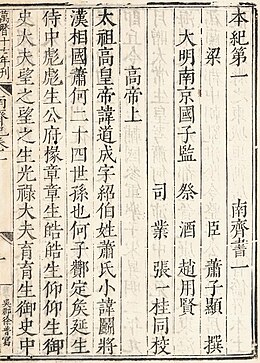 本紀第一　南齊書一
梁　臣　蕭子顯　撰
大明南京國子監　祭　酒　趙用賢
司　業　張一桂同校
高帝上
太祖高皇帝諱道成字紹伯姓蕭氏小諱鬬將
漢相國蕭何二十四世孫也何子酇定矦延生
侍中彪彪生公府掾章章生皓皓生仰仰生御
史大夫望之望之生光祿大夫育育生御史中
萬曆十六年刊